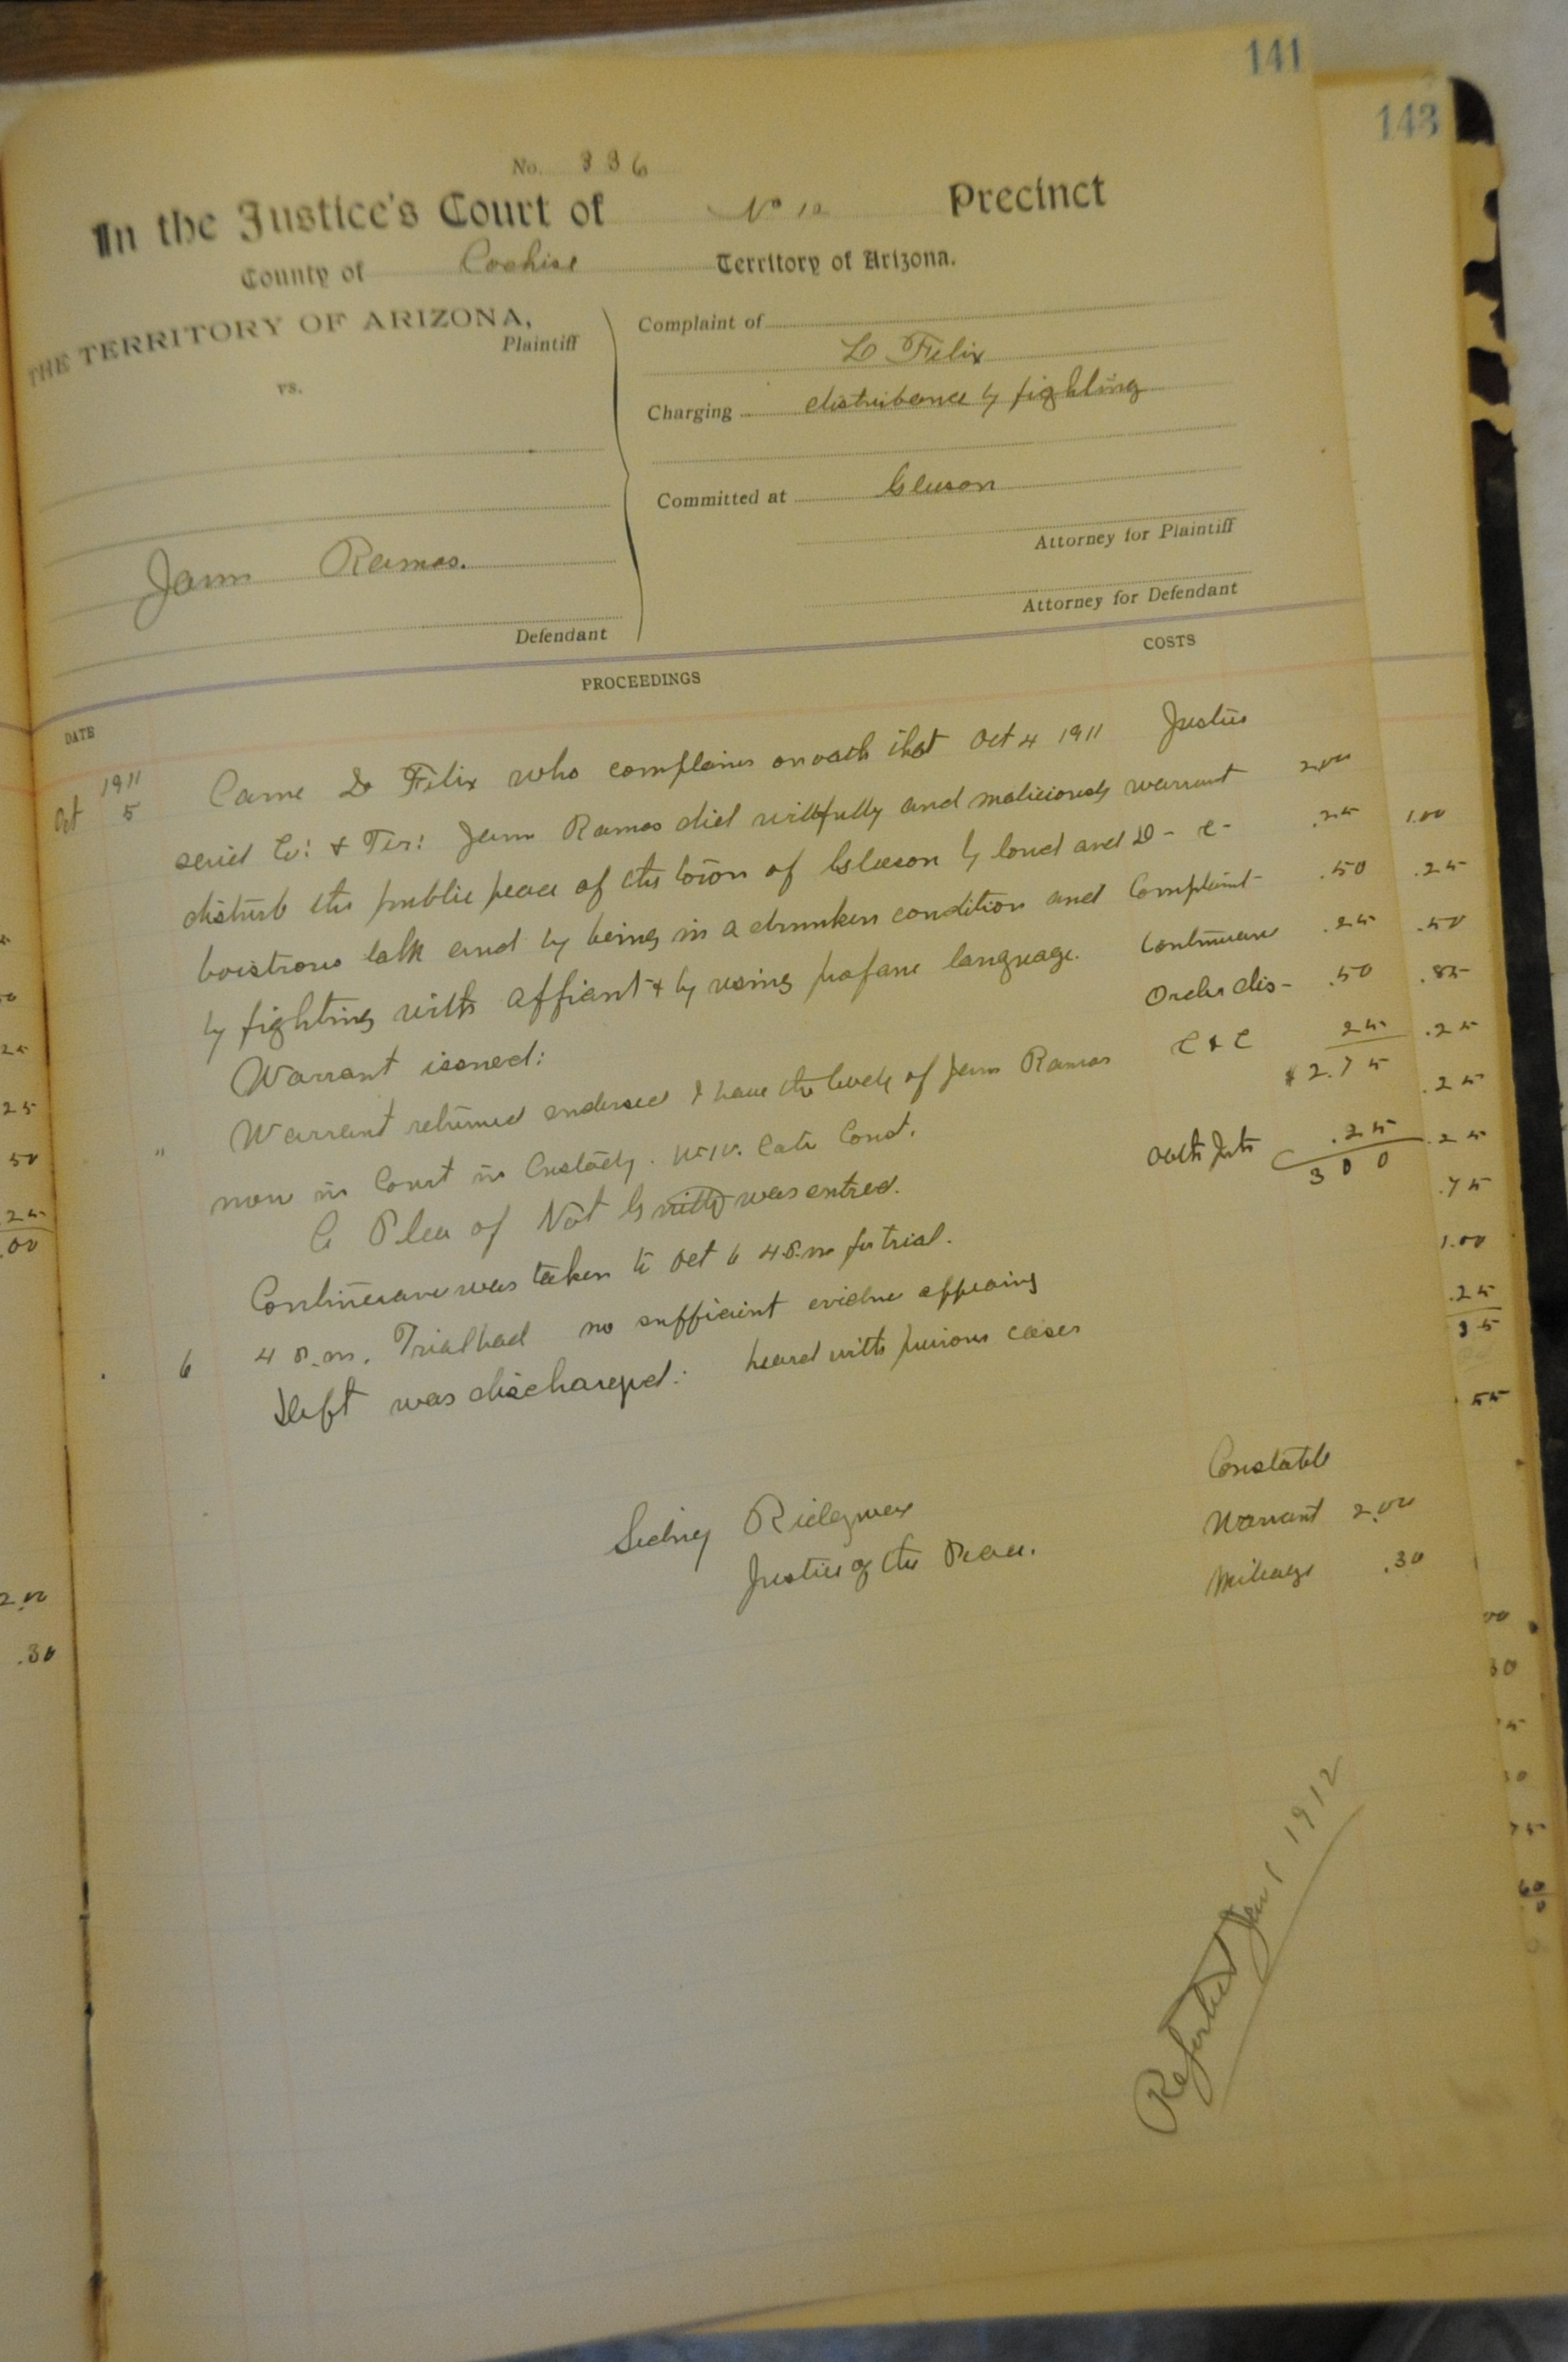 141
143
No. 336
In the Justice's Court of No 10 Precinct
County of Cochise Territory of Arizona.
THE TERRITORY OF ARIZONA,
Plaintiff
vs.
Ramos.
Defendant
Complaint of
Felix
Charging distribance by fighting
Committed at Gleeson
Attorney for Plaintiff
Attorney for Defendant
DATE
PROCEEDINGS
COSTS
1911
Oct 5
Came Felix who complains on oath that Oct 4 1911
said Co: & Ter: Ramos did willfully and maliciously
disturb the public peace of the town of Gleeson by loud and
boistrous talk and by being in a drunken condition and
by fighting with affiant & by using profane language.
Warrant issued:
" Warrant returned endorsed I have the body of Ramos
now in Court in Custody. Cate Const.
A Plea of Not Guilty was entred.
Continuance was taken to Oct 6 4 P.m for trial.
6 4 P.m. Trial had no sufficient evidence appearing
Deft was discharged: heard with previous cases
Sidney Ridgway
Justice of the Peace.
Justice
warrant 2.00
D - C - .25
Complaint .50
Continuance .25
Order dis - .50
C & C 25
$2.75
Oath .25
3 0 0
Constable
Warrant 2.00
Mileage .30
Reported Jan 1 1912
1.00
.25
.50
.85
.25
.25
.25
.75
1.00
.25
55
25
50
.25
.00
2.00
.30